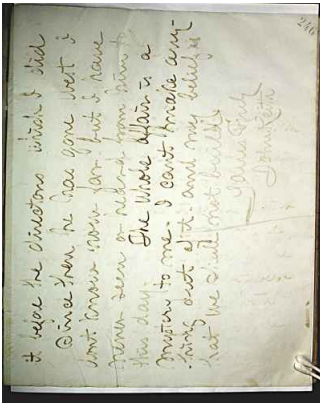 246
it before the directors which I did
Since then he has gone west I
dont know how far but I have
never seen or heard from him to
this day. The whole affair is a
mystery to me. I cant make any-
thing out of it. and my belief is
that we shall not build.
Yours Truly
John